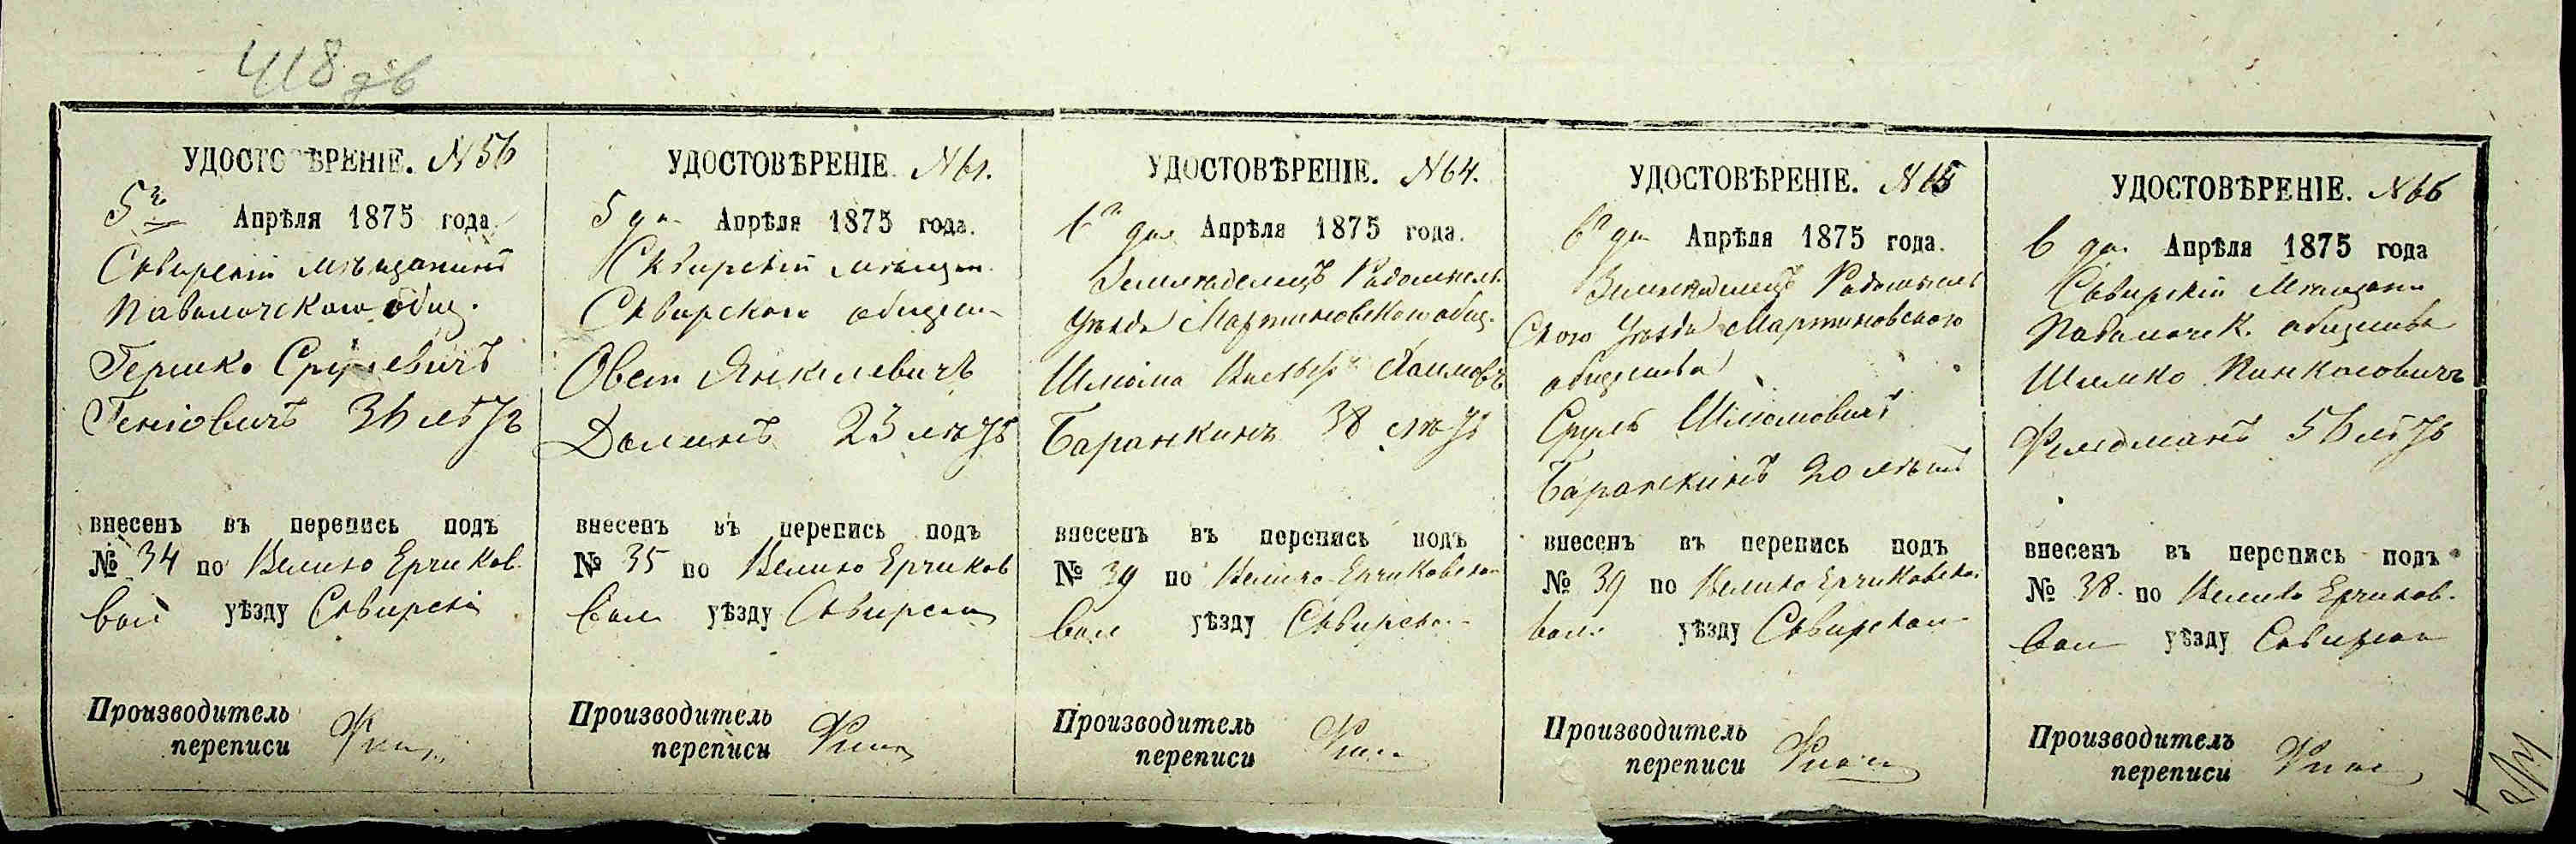 418 дв
УДОСТОВѢРЕНІЕ. №56
5го Апрѣля 1875 года
Сквирскій мѣщанинъ
Паволочского общ.
Гершко Срулевичъ
36 лѣтъ
внесенъ въ перепись подъ
№ 34 по Велико Ерчиков.
Вол уѣзду Сквирскі
Производитель
переписи
УДОСТОВѢРЕНІЕ №61.
5 дн Апрѣля 1875 года.
Сквирскій мѣщан.
Сквирского общест
Овсей Янкелевичъ
Долинъ 23 лѣтъ
внесенъ въ перепись подъ
№ 35 по Велико Ерчиков
Вол уѣзду Сквирском
Производитель
переписи
УДОСТОВѢРЕНІЕ. №64.
6го дня Апрѣля 1875 года.
Земледелецъ Радомысль
Уѣзда Мартиновского общ.
Шлиома Хаимовъ
Баранкинъ 38 лѣтъ
внесенъ въ перепись подъ
№ 39 по Велико-Ерчиковской
Вол уѣзду Сквирском
Производитель
переписи
УДОСТОВѢРЕНІЕ. №65
6го дн Апрѣля 1875 года.
Земледелецъ Радомысль
Ского Уѣзда Мартиновского
общества
Сруль Шлиомовичъ
Баранкинъ 20 лѣтъ
внесенъ въ перепись подъ
№ 39 по Велико Ерчиковской
вол. уѣзду Сквирском
Производитель
переписи
УДОСТОВѢРЕНІЕ. №66
6 дн. Апрѣля 1875 года
Сквирскій Мѣщани
Паволочск. общества
Шимко Пинкасовичъ
Фельдманъ 56 лѣтъ
внесенъ въ перепись подъ
№ 38. по Велико Ерчиков.
Вол уѣзду Сквирском
Производитель
переписи